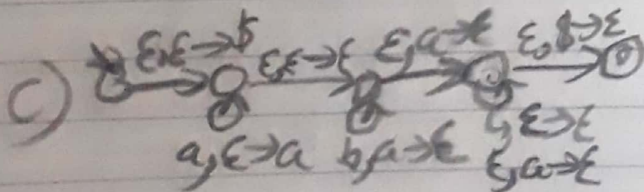 C) ε,ε→$ ε,ε→ε ε,a→ε ε,$→ε
a,ε→a b,a→ε
ε,a→ε